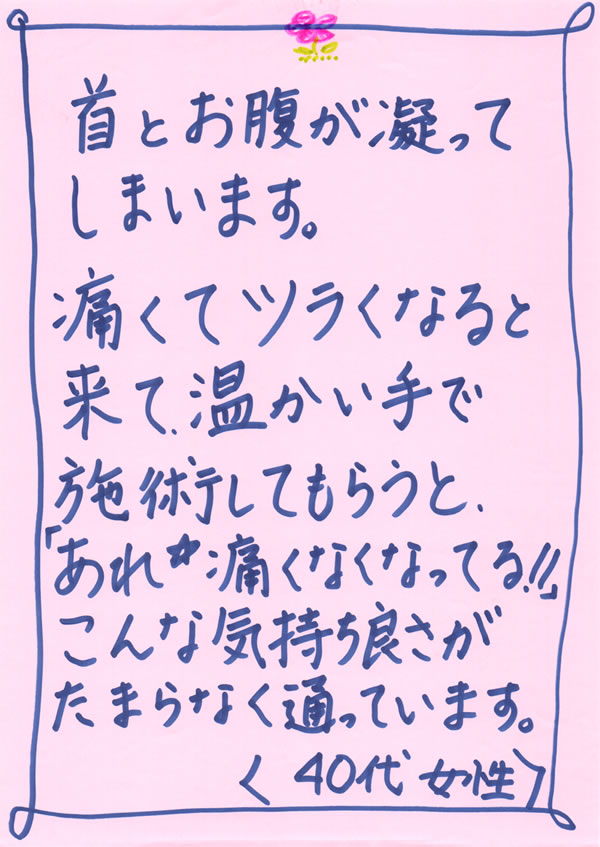 首とお腹が凝って
しまいます。
痛くてツラくなると
来て、温かい手で
施術してもらうと、
「あれ☆痛くなくなってる!!」
こんな気持ち良さが
たまらなく通っています。
〈40代 女性〉